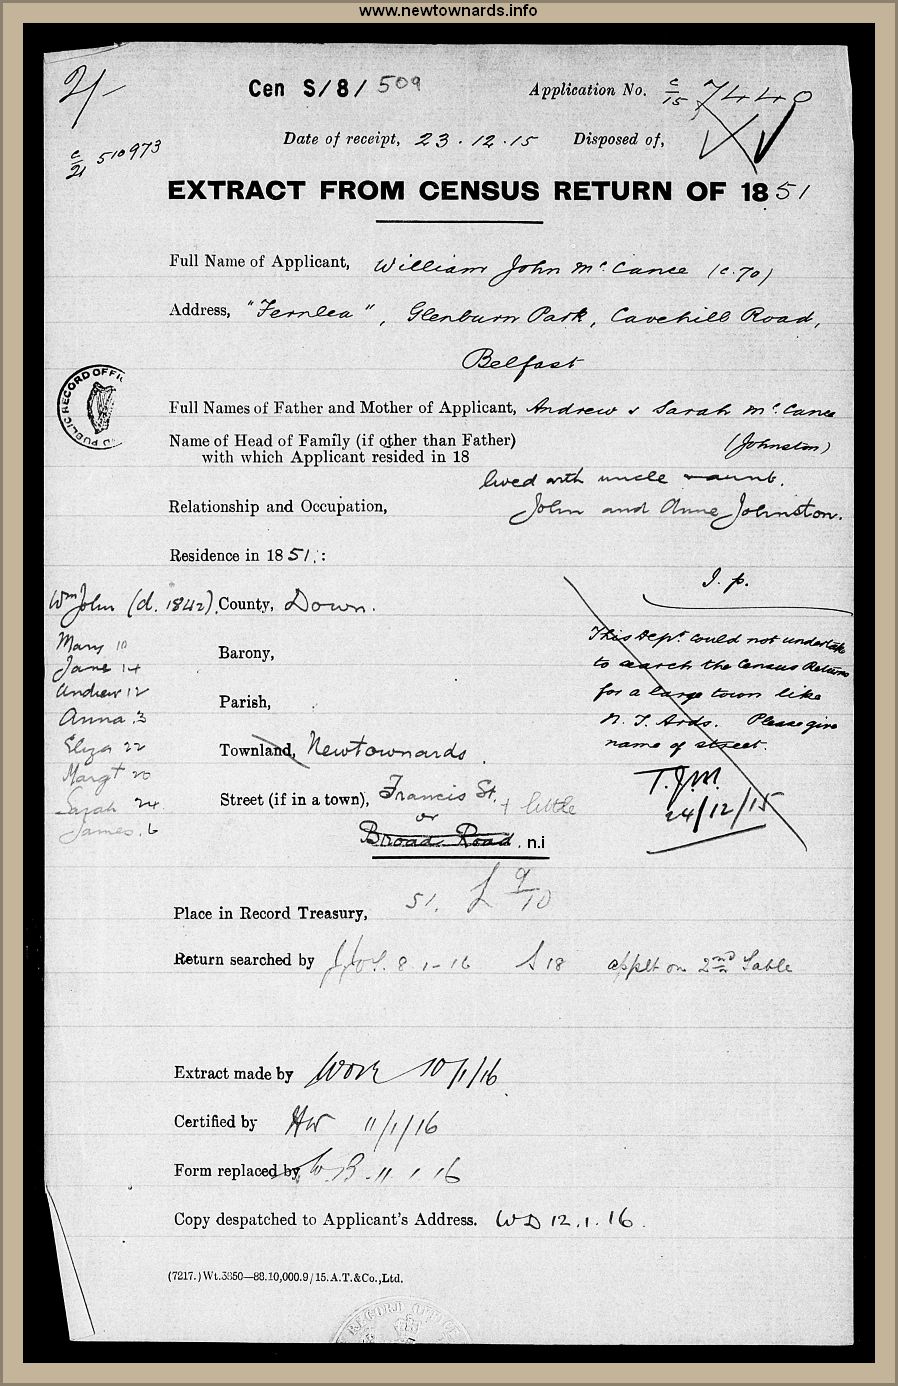 www.newtownards.info
2/-
Cen S/8/ 509
Application No. c/15 7440
c/21 510973
Date of receipt, 23.12.15 Disposed of,
EXTRACT FROM CENSUS RETURN OF 1851
Full Name of Applicant, William John McCance (c.70)
Address, "Fernlea", Glenburn Park, Cavehill Road,
Belfast
PUBLIC RECORD OFFIC
Full Names of Father and Mother of Applicant, Andrew & Sarah McCance
Name of Head of Family (if other than Father) (Johnston)
with which Applicant resided in 18
lived with uncle & aunt.
Relationship and Occupation, John and Anne Johnston.
Residence in 1851, :
I. p.
Wm John (d. 1842) County, Down.
Mary 10
Jane 14
Andrew 12
Anna 3
Eliza 22
Margt 20
Sarah 24
James. 6
Barony,
Parish,
Townland, Newtownards
Street (if in a town), Francis St. + little
or
Broad Road. n.i
This Dept could not undertake
to search the Census Returns
for a large town like
N. T. Ards. Please give
name of street.
T.J.M.
24/12/15
Place in Record Treasury, 51. L 9/10
Return searched by 8 1-16 S 18 applt on 2nd Table
Extract made by 10/1/16
Certified by HW 11/1/16
Form replaced by 11.1.16
Copy despatched to Applicant's Address. WD 12.1.16.
(7217.)Wt.3350—88.10,000.9/15.A.T.&Co.,Ltd.
RECORD OFFICE